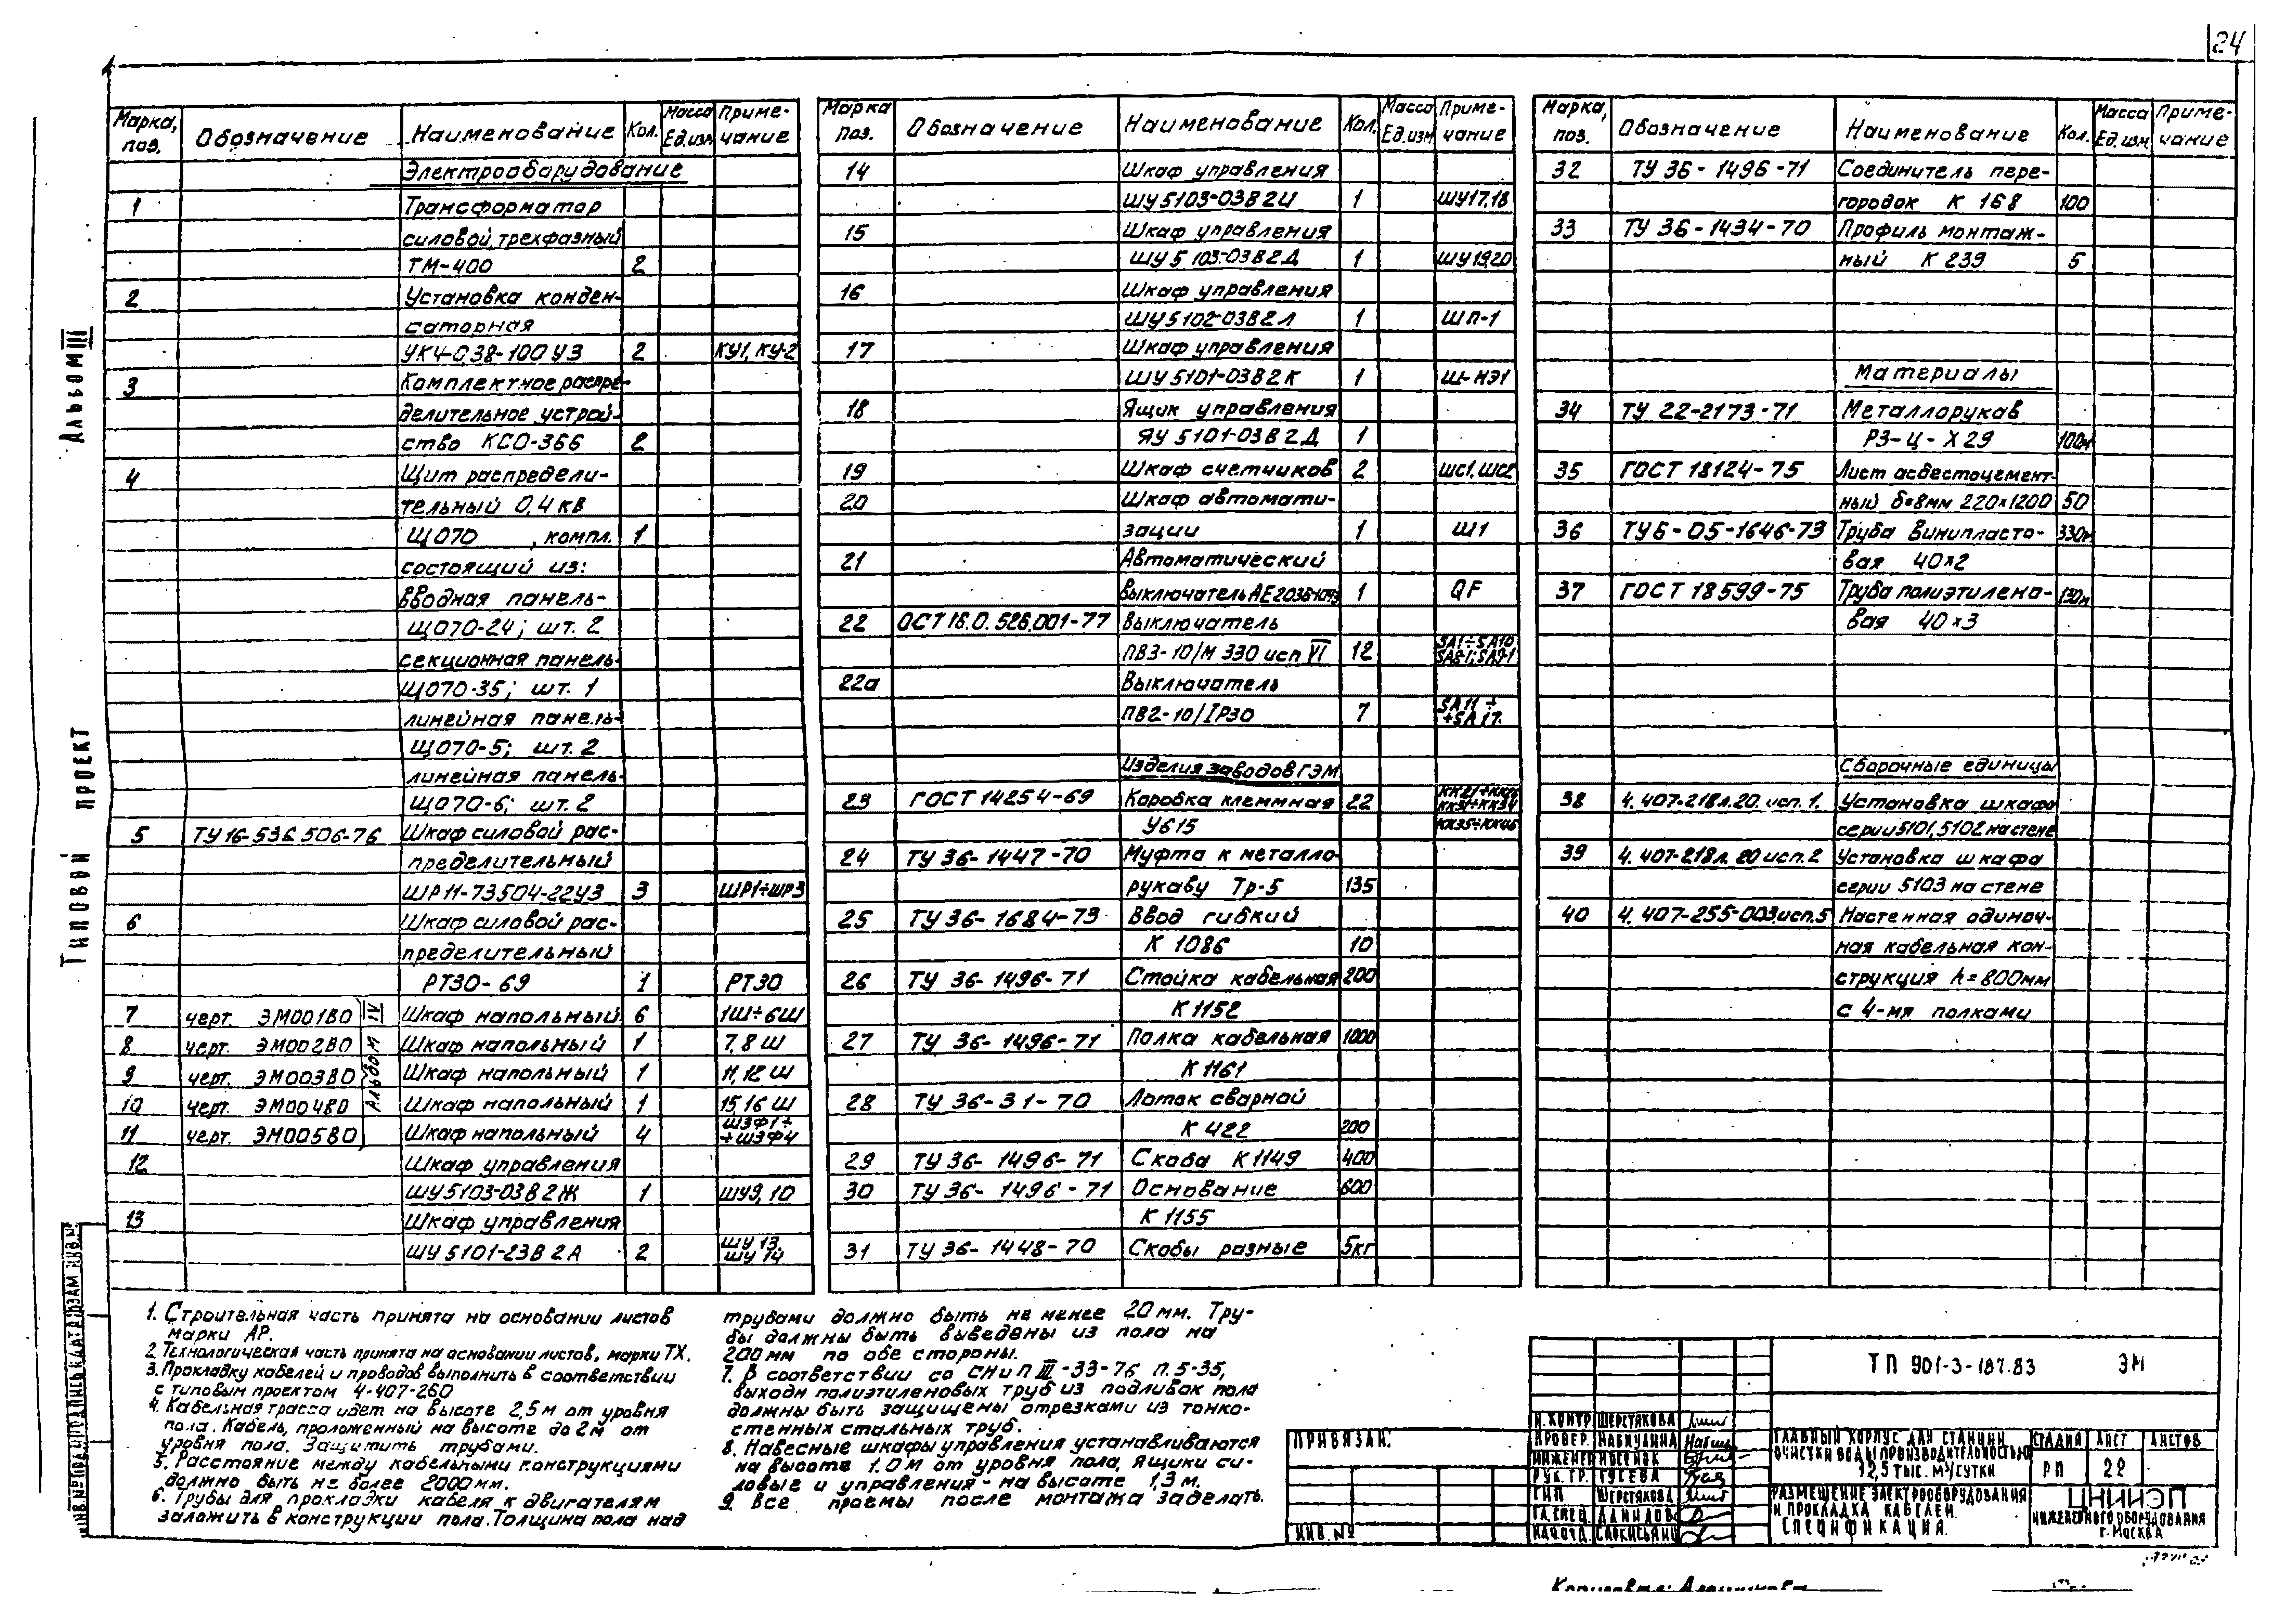 24
Альбом III
Типовой проект
Марка, поз. Обозначение Наименование Кол. Масса Ед.изм Приме-чание
Электрооборудование
1 Трансформатор
силовой, трехфазный
ТМ-400 2
2 Установка конден-
саторная
УК4-038-100 У3 2 КУ1, КУ-2
3 Комплектное распре-
делительное устрой-
ство КСО-366 2
4 Щит распредели-
тельный 0,4 кв
ЩО70 , компл. 1
состоящий из:
вводная панель-
ЩО70-24; шт. 2
секционная панель-
ЩО70-35; шт. 1
линейная панель-
ЩО70-5; шт. 2
линейная панель-
ЩО70-6; шт. 2
5 ТУ 16-536.506-76 Шкаф силовой рас-
пределительный
ШР11-73504-22У3 3 ШР1÷ШР3
6 Шкаф силовой рас-
пределительный
РТЗО-69 1 РТЗО
7 черт. ЭМ001В0 Шкаф напольный 6 1Ш÷6Ш
8 черт. ЭМ002В0 Шкаф напольный 1 7,8 Ш
9 черт. ЭМ003В0 Шкаф напольный 1 11,12 Ш
10 черт. ЭМ004В0 Шкаф напольный 1 15,16 Ш
11 черт. ЭМ005В0 Шкаф напольный 4 ШЗФ1÷ ÷ШЗФ4
Альбом IV
12 Шкаф управления
ШУ5103-03В2Ж 1 ШУ9, 10
13 Шкаф управления
ШУ 5101-23В 2А 2 ШУ 13, ШУ 14
Марка поз. Обозначение Наименование Кол. Масса Ед.изм Приме-чание
14 Шкаф управления
ШУ5103-03В2И 1 ШУ17,18
15 Шкаф управления
ШУ5103-03В2Д 1 ШУ19,20
16 Шкаф управления
ШУ5102-03В2Л 1 ШП-1
17 Шкаф управления
ШУ5101-03В2К 1 Ш-НЭ1
18 Ящик управления
ЯУ 5101-03В2Д 1
19 Шкаф счетчиков 2 ШС1, ШС2
20 Шкаф автомати-
зации 1 Ш1
21 Автоматический
выключатель АЕ2038-10УЗ 1 QF
22 ОСТ 16.0.526.001-77 Выключатель
ПВ3-10/М 330 исп VI 12 SA1÷SA10 SA8-1; SA9-1
22а Выключатель
ПВ2-10/IP30 7 SA11 ÷ ÷SA17.
Изделия заводов ГЭМ
23 ГОСТ 14254-69 Коробка клеммная 22 КК31÷КК34
У615 КК35÷КК46
24 ТУ 36-1447-70 Муфта к металло-
рукаву Тр-5 135
25 ТУ 36-1684-73 Ввод гибкий
К 1086 10
26 ТУ 36-1496-71 Стойка кабельная 200
К 1152
27 ТУ 36-1496-71 Полка кабельная 1000
К 1161
28 ТУ 36-31-70 Лоток сварной
К 422 200
29 ТУ 36-1496-71 Скоба К 1149 400
30 ТУ 36-1496-71 Основание 600
К 1155
31 ТУ 36-1448-70 Скобы разные 5кг
Марка, поз. Обозначение Наименование Кол. Масса Ед.изм Приме-чание
32 ТУ 36-1496-71 Соединитель пере-
городок К 168 100
33 ТУ 36-1434-70 Профиль монтаж-
ный К 239 5
Материалы
34 ТУ 22-2173-71 Металлорукав
РЗ-Ц-Х 29 100м
35 ГОСТ 18124-75 Лист асбестоцемент-
ный б=8мм 220х1200 50
36 ТУ6-05-1646-73 Труба винипласто- 330м
вая 40х2
37 ГОСТ 18599-75 Труба полиэтилено- 130м
вая 40х3
Сборочные единицы
38 4.407-218л.20.исп.1. Установка шкафа
серии 5101, 5102 на стене
39 4.407-218л.20 исп.2 Установка шкафа
серии 5103 на стене
40 4.407-255-003.исп.5 Настенная одиноч-
ная кабельная кон-
струкция h=800мм
с 4-мя полками
1. Строительная часть принята на основании листов
марки АР.
2. Технологическая часть принята на основании листов, марки ТХ.
3. Прокладку кабелей и проводов выполнить в соответствии
с типовым проектом 4-407-260
4. Кабельная трасса идет на высоте 2,5м от уровня
пола. Кабель, проложенный на высоте до 2м от
уровня пола. Защитить трубами.
5. Расстояние между кабельными конструкциями
должно быть не более 2000мм.
6. Трубы для прокладки кабеля к двигателям
заложить в конструкции пола. Толщина пола над
трубами должно быть не менее 20мм. Тру-
бы должны быть выведены из пола на
200мм по обе стороны.
7. В соответствии со СНиП III-33-76 п.5-35,
выходы полиэтиленовых труб из подливок пола
должны быть защищены отрезками из тонко-
стенных стальных труб.
8. Навесные шкафы управления устанавливаются
на высоте 1.0м от уровня пола, ящики си-
ловые и управления - на высоте 1,3 м.
9. Все проемы после монтажа заделать.
ПРИВЯЗАН:
ИНВ.№
Н.КОНТР ШЕРСТЯКОВА
ПРОВЕР. НАБИУЛИНА
ИНЖЕНЕР
РУК. ГР. ГУСЕВА
ГИП ШЕРСТЯКОВА
ГЛ.СПЕЦ. ДАНИЛОВ
НАЧ.ОТД. САРКИСЬЯНЦ
ТП 901-3-187.83 ЭМ
ГЛАВНЫЙ КОРПУС ДЛЯ СТАНЦИИ
ОЧИСТКИ ВОДЫ ПРОИЗВОДИТЕЛЬНОСТЬЮ
12,5 ТЫС. М³/СУТКИ
СТАДИЯ ЛИСТ ЛИСТОВ
РП 22
РАЗМЕЩЕНИЕ ЭЛЕКТРООБОРУДОВАНИЯ
И ПРОКЛАДКА КАБЕЛЕЙ.
СПЕЦИФИКАЦИЯ.
ЦНИИЭП
ИНЖЕНЕРНОГО ОБОРУДОВАНИЯ
г. МОСКВА